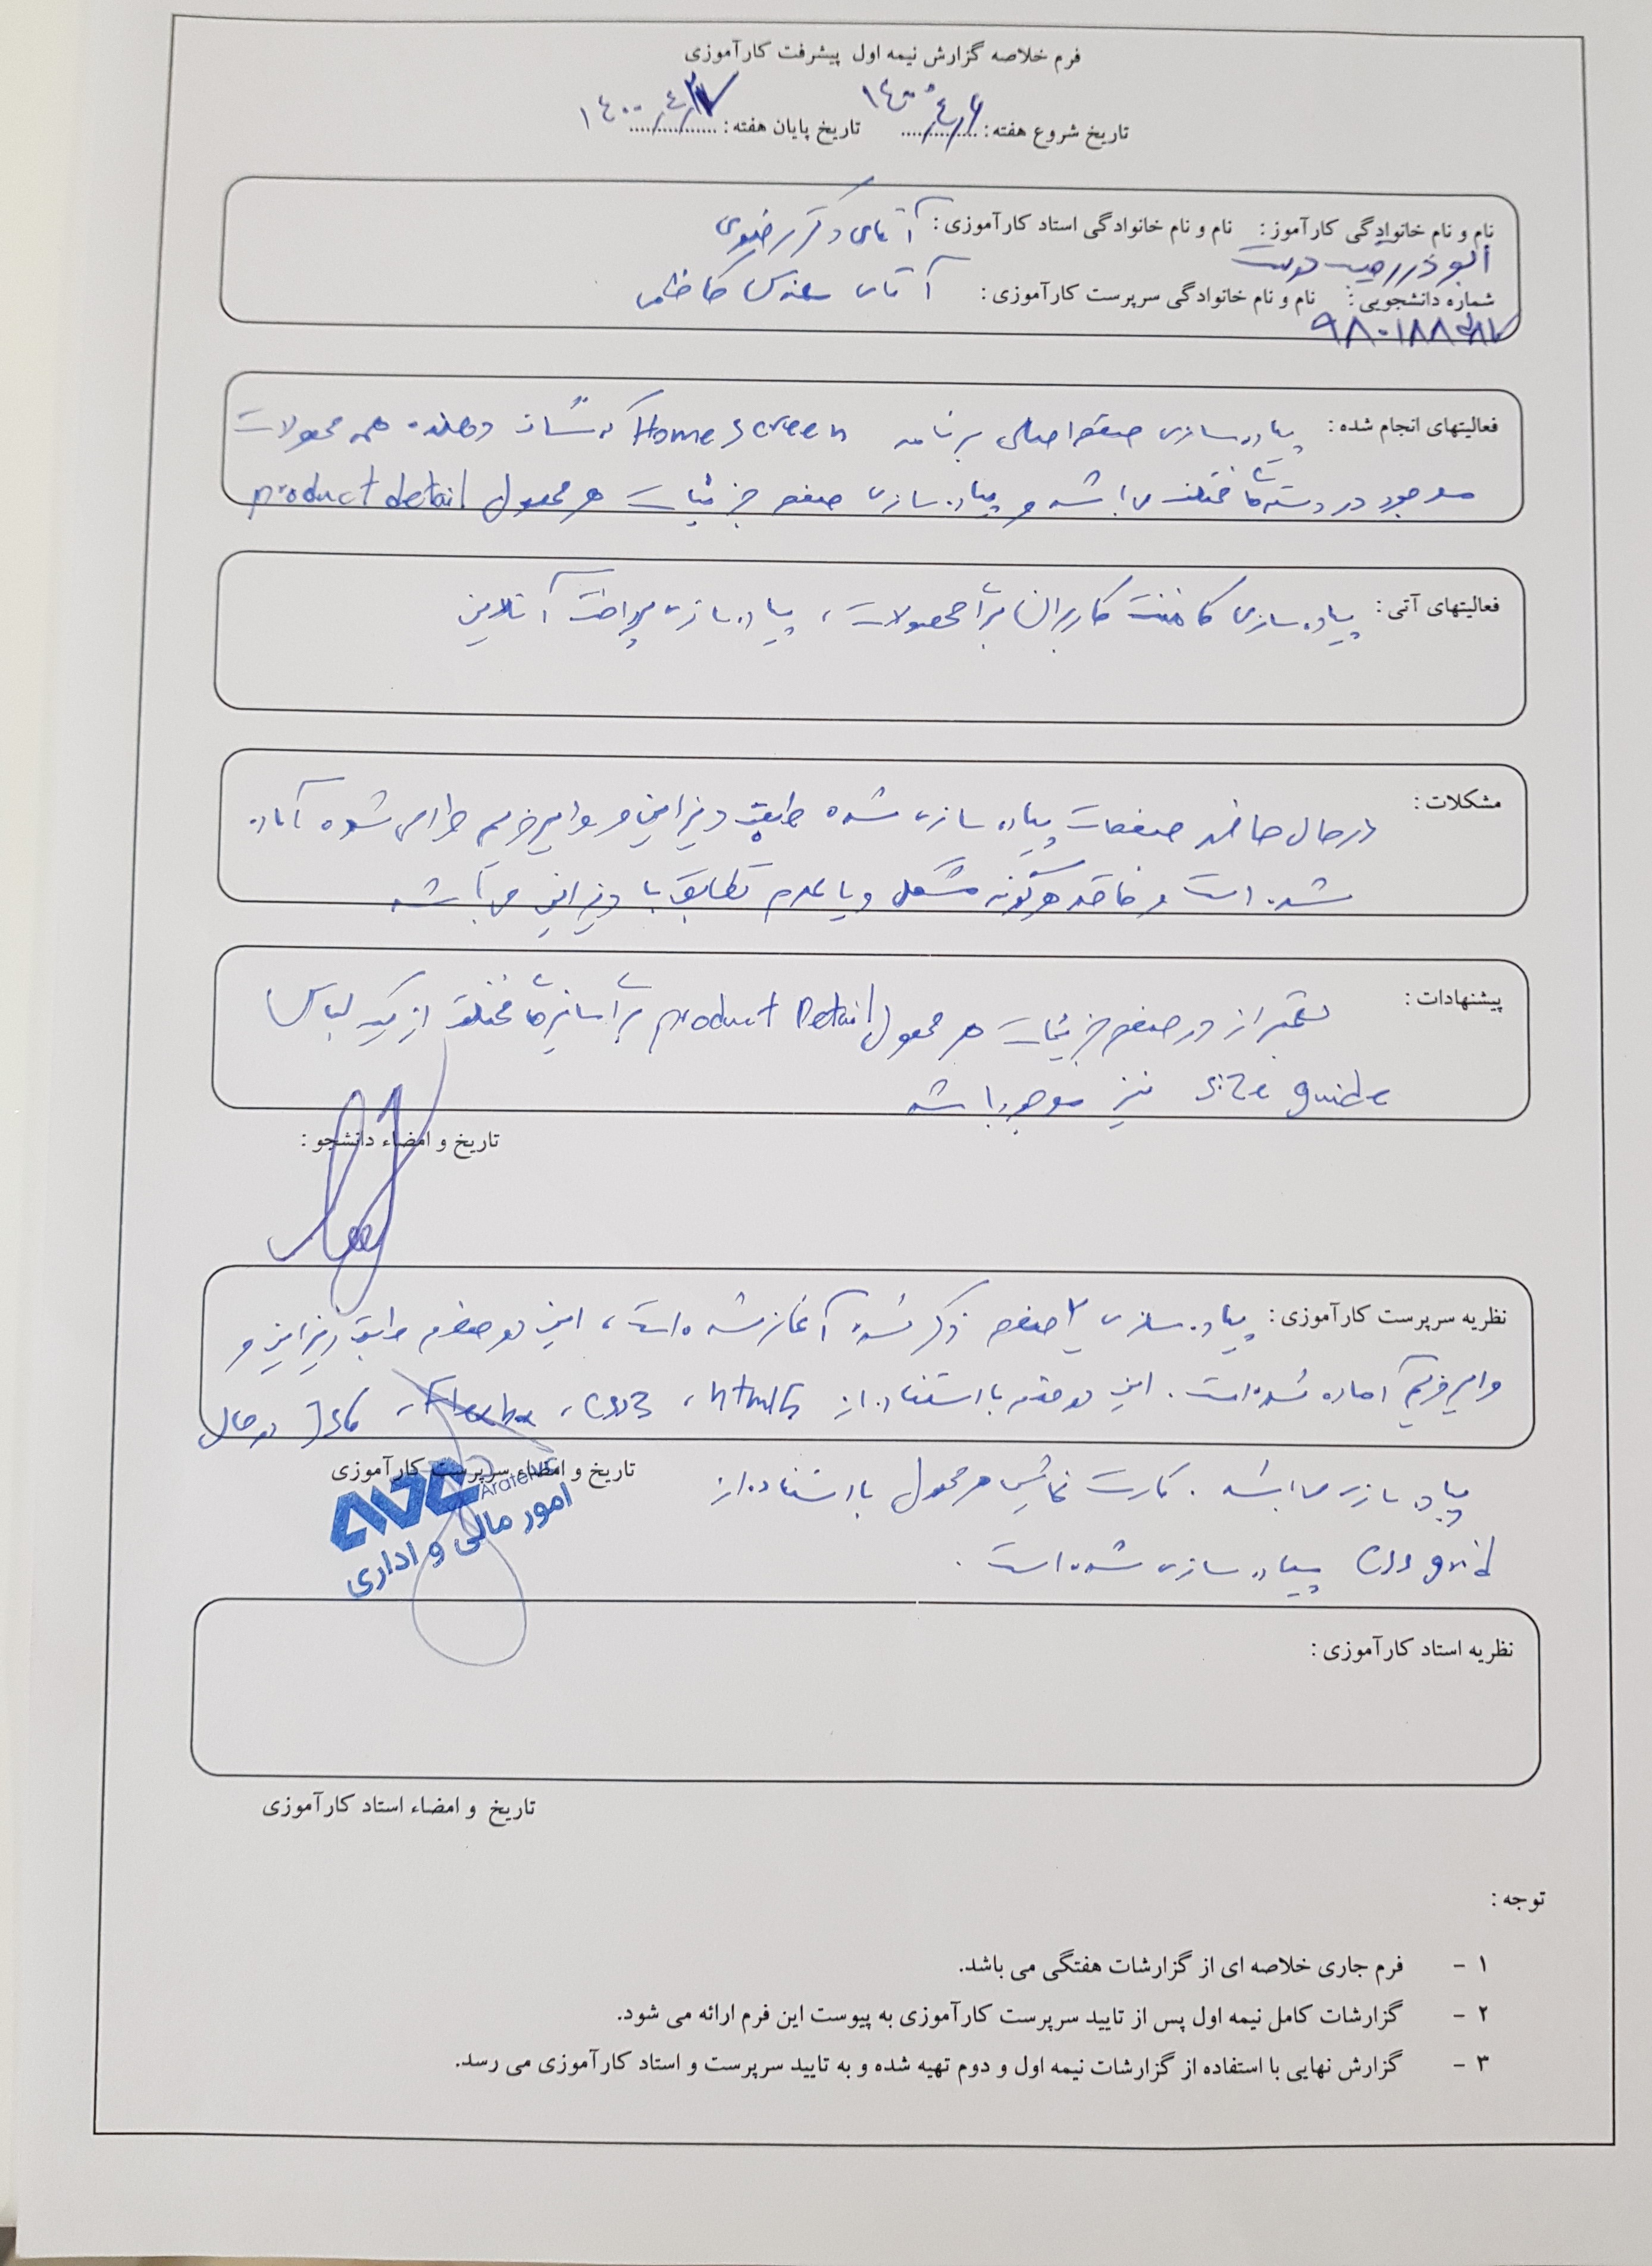 فرم خلاصه گزارش نیمه اول پیشرفت کارآموزی
تاریخ شروع هفته : ۱۴۰۰/۴/۶ تاریخ پایان هفته : ۱۴۰۰/۴/
نام و نام خانوادگی کارآموز : نام و نام خانوادگی استاد کارآموزی : آقای دکتر رضوی
ابوذر دوست
شماره دانشجویی : نام و نام خانوادگی سرپرست کارآموزی : آقای مهندس کاظمی
فعالیتهای انجام شده : پیاده سازی صفحه اصلی برنامه Home screen که نشان دهنده همه محصولات
موجود در دسته های مختلف می باشد و پیاده سازی صفحه جزئیات هر محصول product detail
فعالیتهای آتی : پیاده سازی کامنت کاربران برای محصولات ، پیاده سازی پرداخت آنلاین
مشکلات : در حال حاضر صفحات پیاده سازی شده طبق دیزاین و وایرفریم طراحی شده آماده
شده است و فاقد هرگونه مشکل و یا عدم تطابق با دیزاین می باشد
پیشنهادات : بهتر از در صفحه جزئیات هر محصول product Detail برای سایزهای مختلف از یک لباس
size guide نیز موجود باشد
تاریخ و امضاء دانشجو :
نظریه سرپرست کارآموزی : پیاده سازی ۲ صفحه ذکر شده آغاز شده است ، این دو صفحه طبق دیزاین و
وایرفریم آماده شده است . این دو صفحه با استفاده از html5 ، css3 ، Flexbox ، در حال
پیاده سازی می باشد . کارت نمایش هر محصول با استفاده از
تاریخ و امضاء سرپرست کارآموزی
css grid پیاده سازی شده است .
AVC
امور مالی و اداری
نظریه استاد کارآموزی :
تاریخ و امضاء استاد کارآموزی
توجه :
۱ - فرم جاری خلاصه ای از گزارشات هفتگی می باشد.
۲ - گزارشات کامل نیمه اول پس از تایید سرپرست کارآموزی به پیوست این فرم ارائه می شود.
۳ - گزارش نهایی با استفاده از گزارشات نیمه اول و دوم تهیه شده و به تایید سرپرست و استاد کارآموزی می رسد.